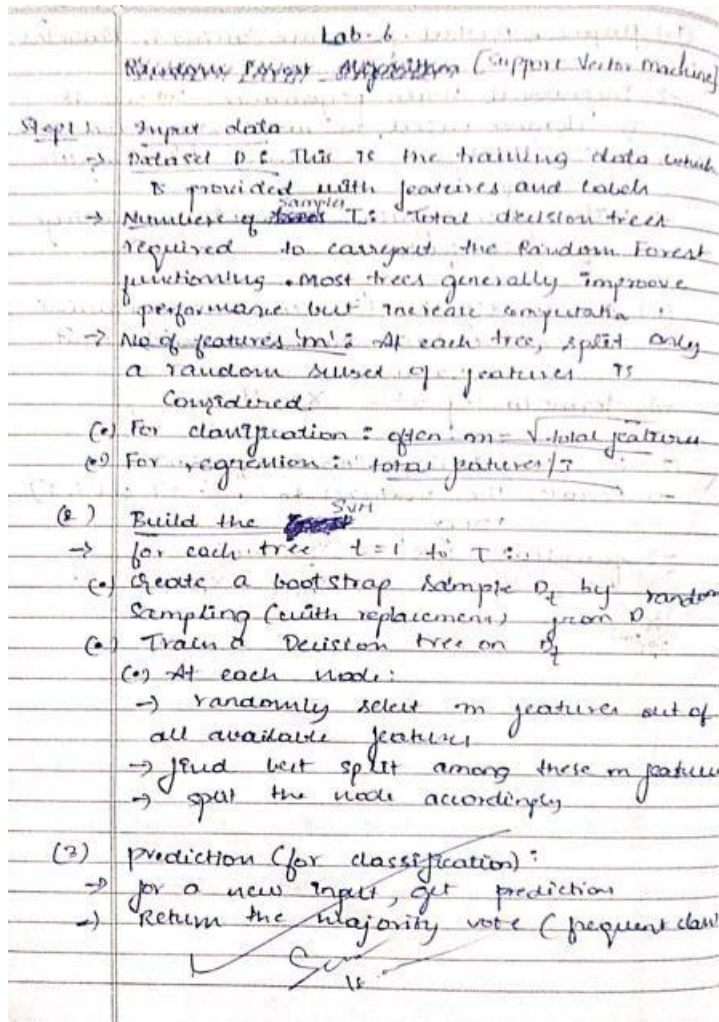 Lab-6
Random Forest Algorithm (Support Vector Machine)
Step1: Input data
→ Dataset D: This is the training data which
is provided with features and labels
Samples
→ Number of trees T: Total decision trees
required to carryout the Random Forest
functioning. Most trees generally improove
performance but increase computatio
→ No of features 'm': At each tree, split only
a random suset of features is
Considered.
(•) For classification: often m = √total features
(•) For regression: total features/3
SVM
(2) Build the
→ for each tree t=1 to T:
(•) Create a bootstrap sample Dt by random
Sampling (with replacement) from D
(•) Train a Decision tree on Dt
(•) At each node:
→ randomly select m features out of
all available features
→ find best split among these m features
→ split the node accordingly
(3) prediction (for classification):
→ for a new input, get prediction
→ Return the majority vote (frequent class